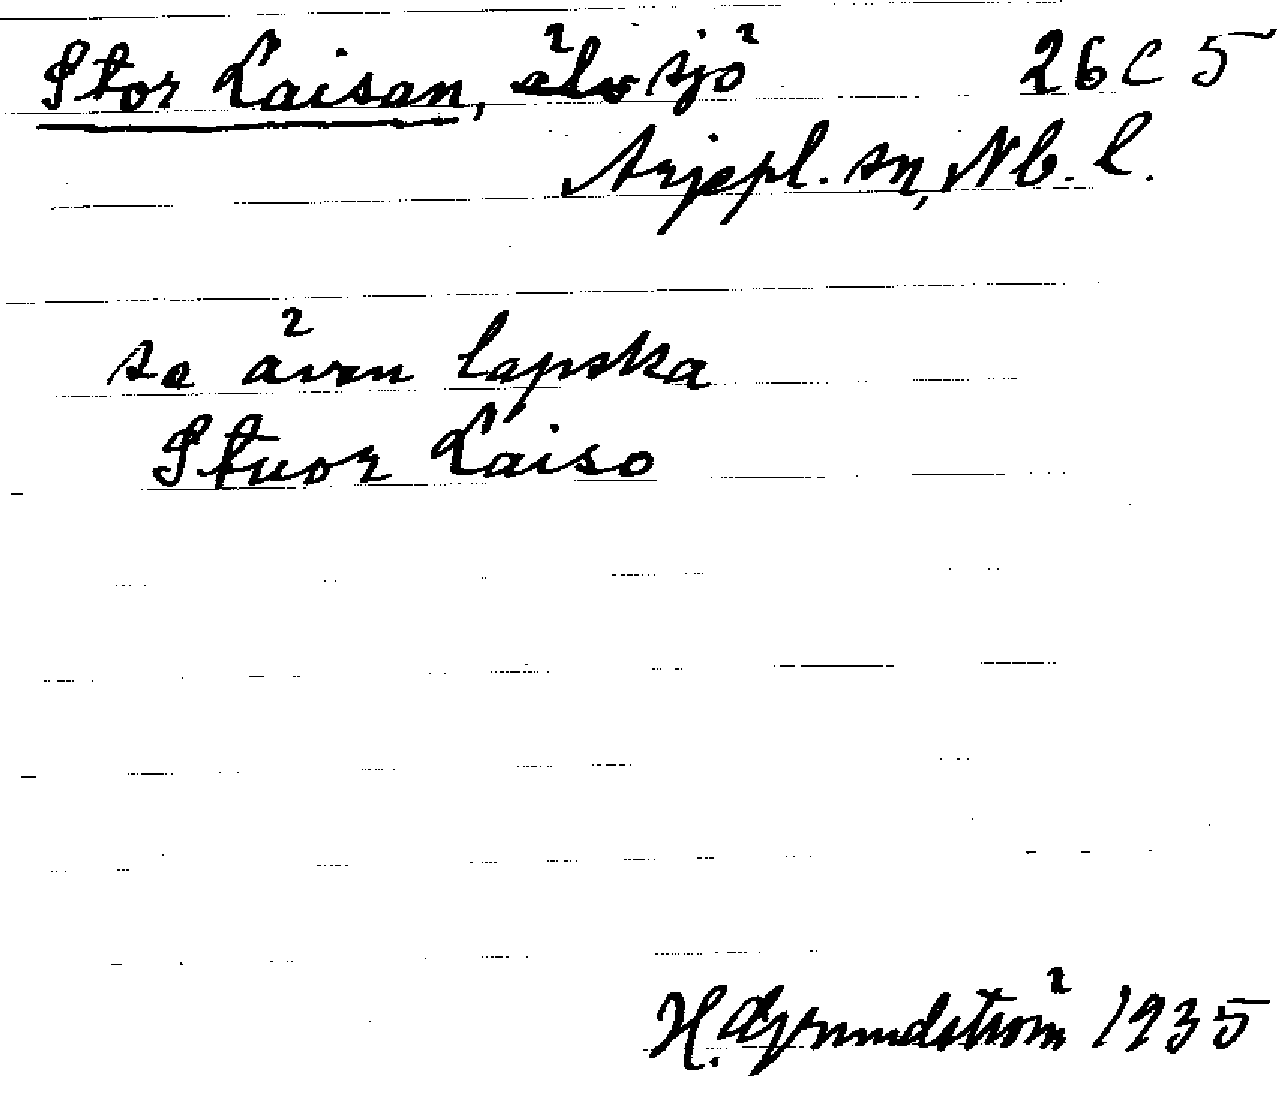 Stor Laisan, älvsjö 26C5
Arjepl. sn, Nb. l.
se även lapska
Stuor Laiso
H. Grundström 1935